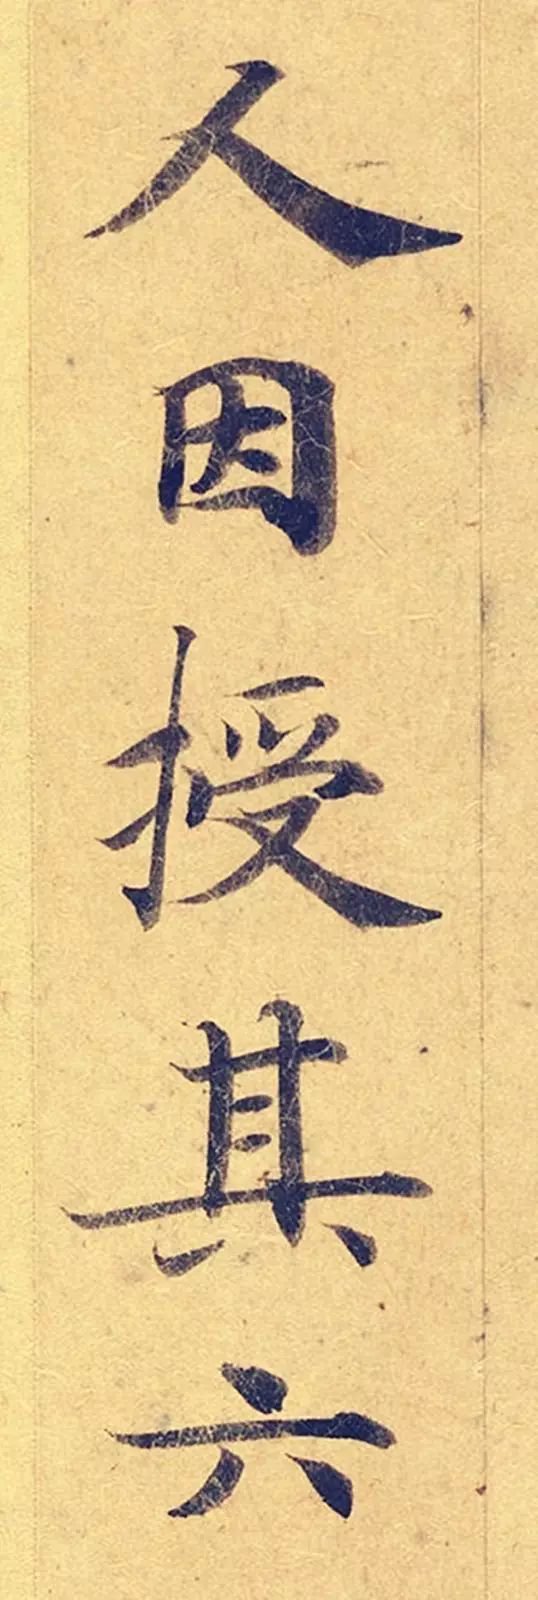 人因授其六